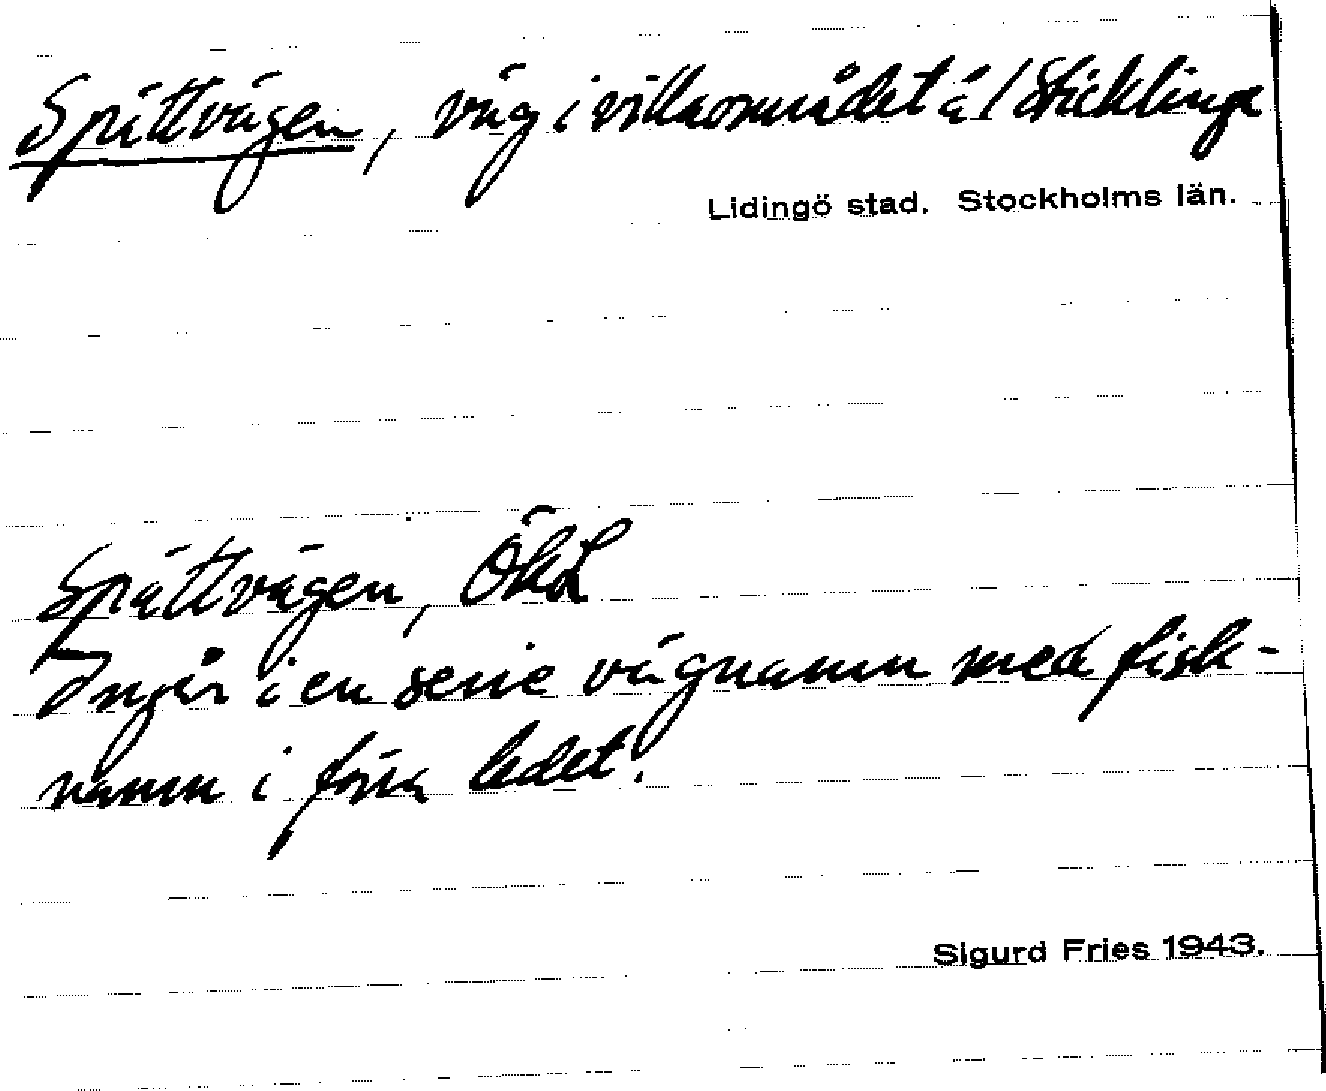 Spättvägen, väg i villaområdet å / Sticklinge
Lidingö stad. Stockholms län.
Spättvägen, ÖkL
Ingår i en serie vägnamn med fisk-
namn i förra ledet.
Sigurd Fries 1943.